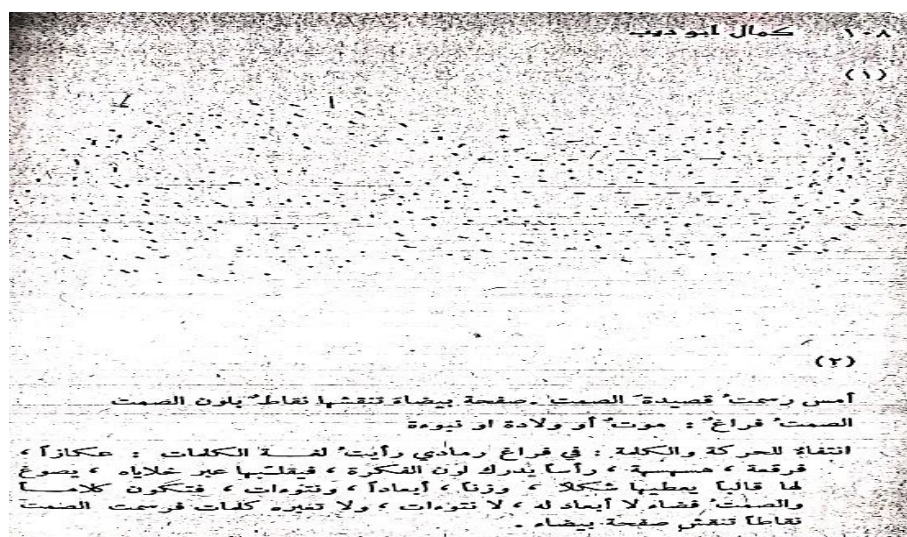 ١٠٨ كمال ابو ديب
(١)
(٢)
أمس رسمتُ قصيدةَ الصمت . صفحة بيضاء تنقشها نقاطٌ بلون الصمت
الصمتُ فراغٌ : موتٌ أو ولادة او نبوءة
انتفاءٌ للحركة والكلمة : في فراغ رمادي رأيتُ لغة الكلمات : عكازاً ،
فرقعة ، هسهسة ، رأساً يُدرك لون الفكرة ، فيقلّبها عبر خلاياه ، يصوغ
لها قالباً يعطيها شكلا ، وزناً ، أبعاداً ، ونتوءات ، فتكون كلامــاً
والصمتُ فضاء لا أبعاد له ، لا نتوءات ، ولا تغيره كلمات فرسمت الصمت
نقاطاً تنقش صفحة بيضاء .